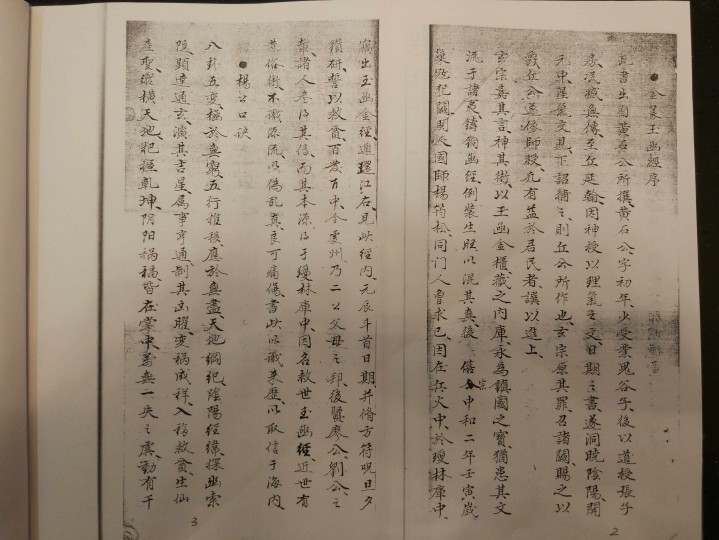 金篆玉函經序
此書出自黃石公所撰黃石公字初年少受業鬼谷子後以道授張子
房泯滅無傳至丘延翰因神授以理氣之文日期之書遂洞曉陰陽開
元中星氣交見下詔捕之則丘公所作也玄宗原其罪召諸闕賜之以
爵丘公遂修師授凡有益於君民者譔以進上
玄宗嘉其言神其術以玉函金櫃藏之內庫永為鎮國之寶猶患其文
流于諸夷鑄銅函經例裝生旺以混其真後 僖宗中和二年壬寅歲
巢賊犯闕門人國師楊筠松同門人曾求己因在兵火中於瓊林庫中
2
竊出玉函金經進環江右見此經內元辰斗首日期并脩方符呪旦夕
鑽研誓以救貧百發百中今虔州乃二公父母之邦後賢廖公劉公之
輩諸人各得其傳而其本源得于瓊林庫中因名救世玉函經近世有
等俗術不識源流以偽亂真良可痛傷書此以識來歷以取信于海內
楊公口訣
八卦五变極於無窮五行推移應於無盡天地綱紀陰陽經緯探幽索
隐顯達通玄演其吉星屬事亨通制其凶曜变祸成祥入務救貧生仙
產聖環橫天地把握乾坤阴阳祸福皆在掌中萬無一失之虞動有千
3